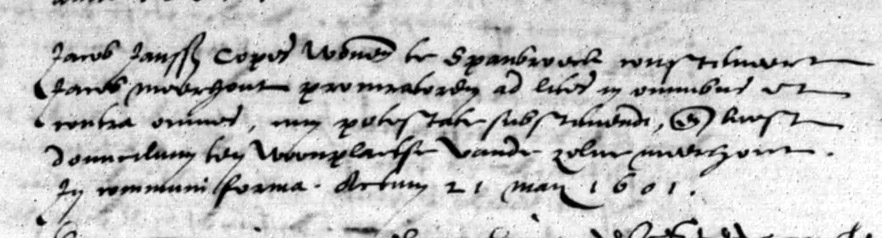 Jacob Janssz Copes wonen te Spanbroeck constitueert
Jacob Meerhout procuratorem ad lites in omnibus et
contra omnes, cum potestate substituendi, en kiest
domicilium ten woonplaetse vande zelve meerhout.
In communi forma. Actum 21 may 1601.